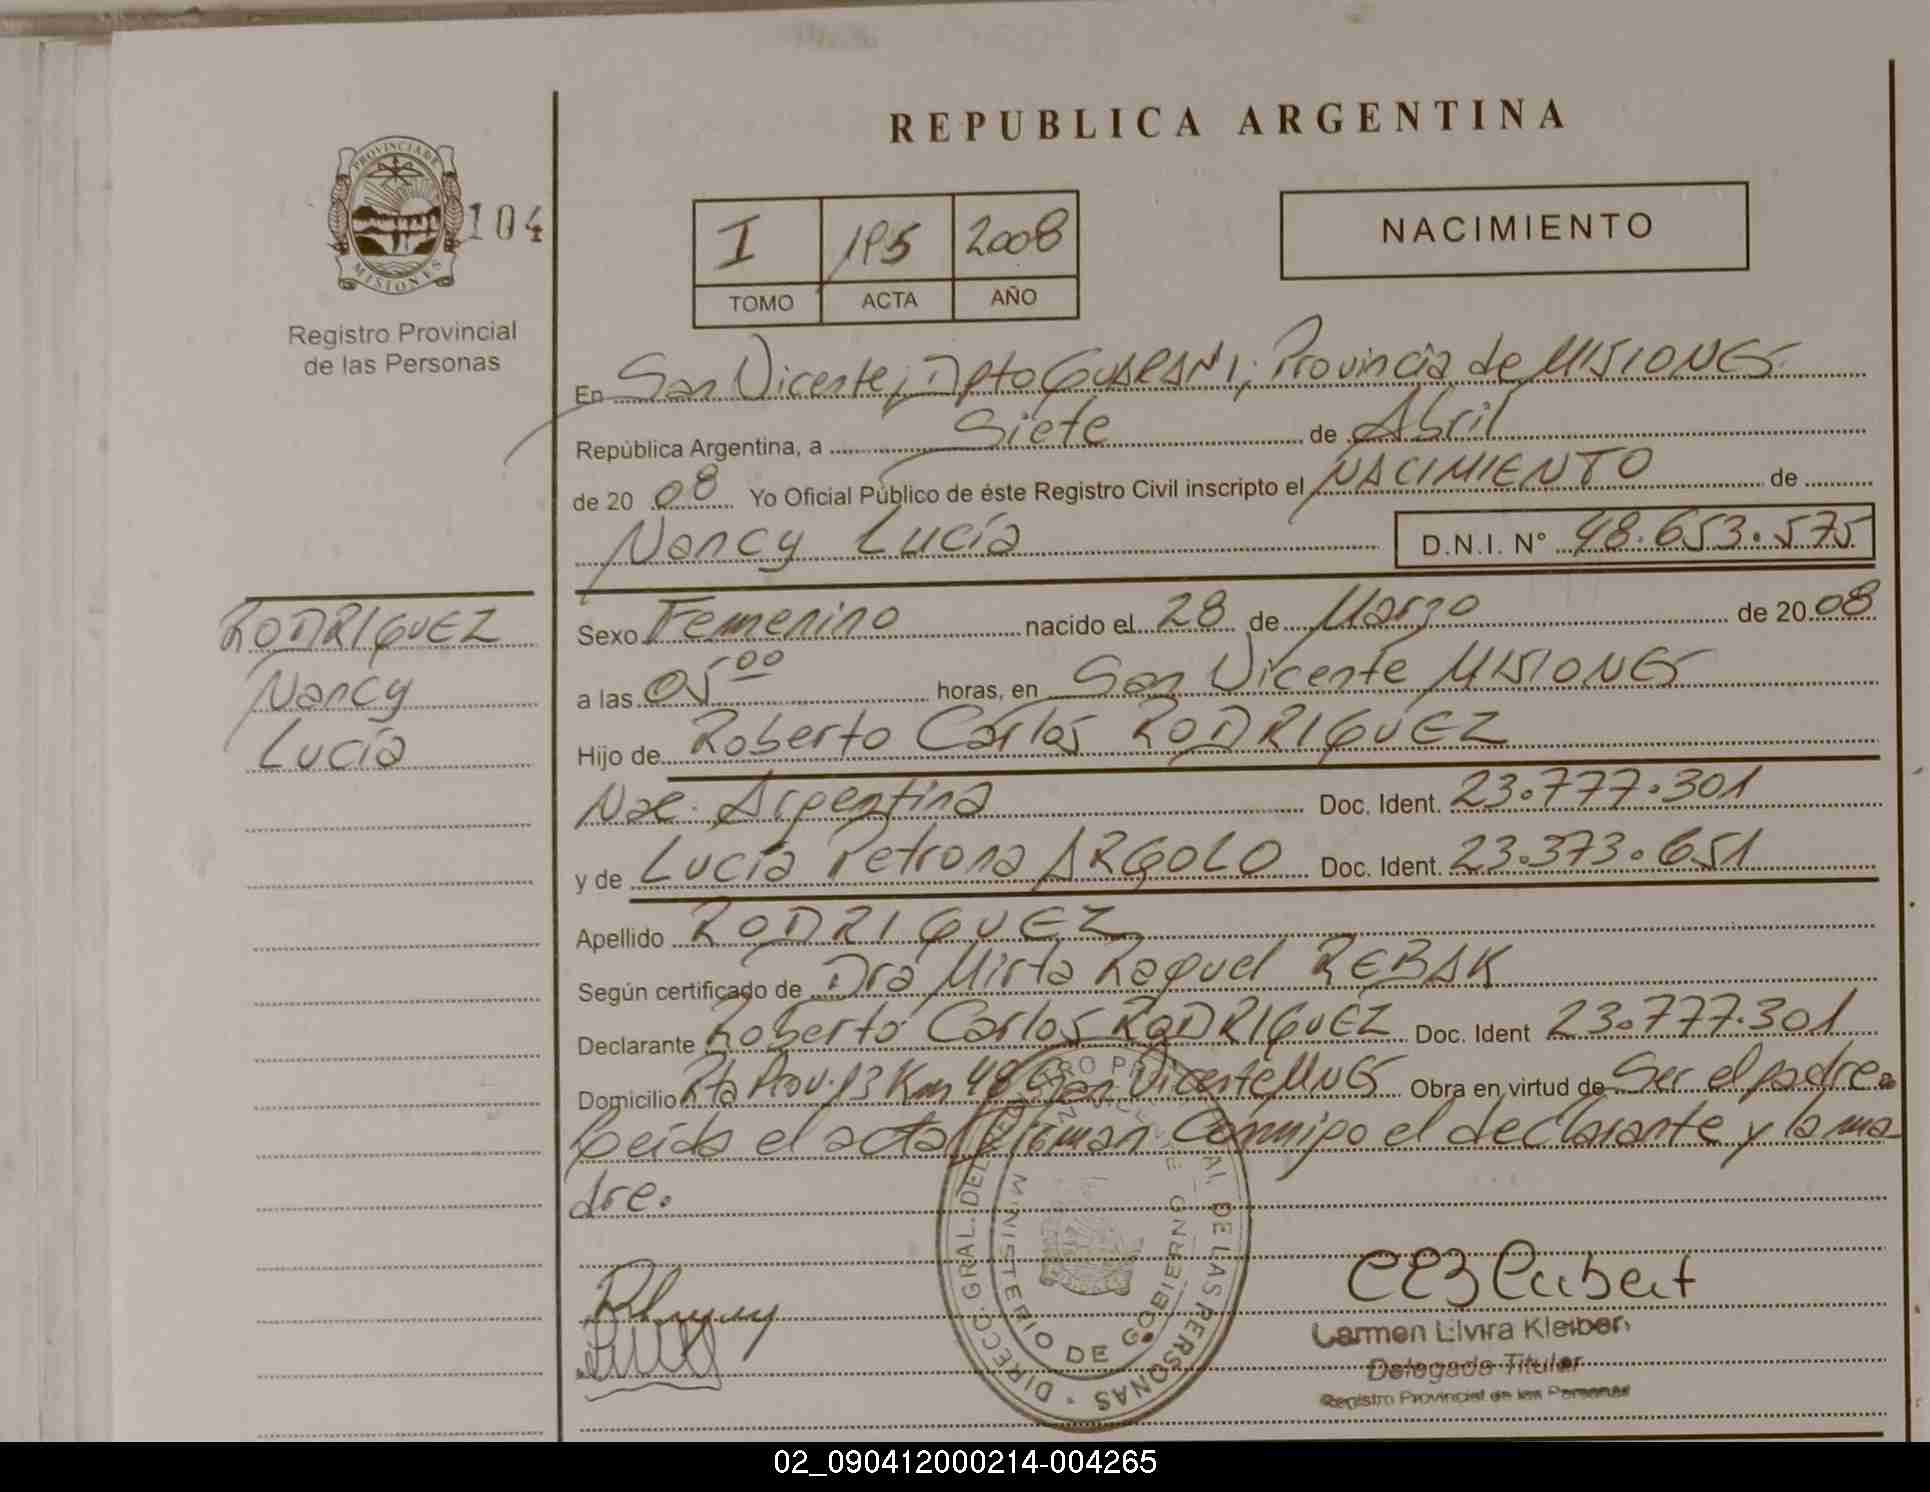 REPUBLICA ARGENTINA
PROVINCIA DE
MISIONES
104
Registro Provincial
de las Personas
I 195 2008
TOMO ACTA AÑO
NACIMIENTO
En San Vicente, Dpto GUARANI, Provincia de MISIONES
República Argentina, a Siete de Abril
de 20 08 Yo Oficial Público de éste Registro Civil inscripto el NACIMIENTO de
Nancy Lucía D.N.I. N° 48.653.575
RODRIGUEZ
Nancy
Lucía
Sexo Femenino nacido el 28 de Marzo de 20 08
a las 05 00 horas, en San Vicente MISIONES
Hijo de Roberto Carlos RODRIGUEZ
Nac. Argentina Doc. Ident. 23.777.301
y de Lucía Petrona ARGOLO Doc. Ident. 23.373.651
Apellido RODRIGUEZ
Según certificado de Dra Mirta Raquel REBAK
Declarante Roberto Carlos RODRIGUEZ Doc. Ident 23.777.301
Domicilio Rta Prov. 13 Km 48 San Vicente MNES Obra en virtud de Ser el padre.
Leída el acta Firman Conmigo el declarante y la ma
dre.
DIRECC. GRAL. DEL DE LAS PERSONAS
MINISTERIO DE GOBIERNO
Carmen Elvira Kleibert
Delegada Titular
Registro Provincial de las Personas
02_090412000214-004265